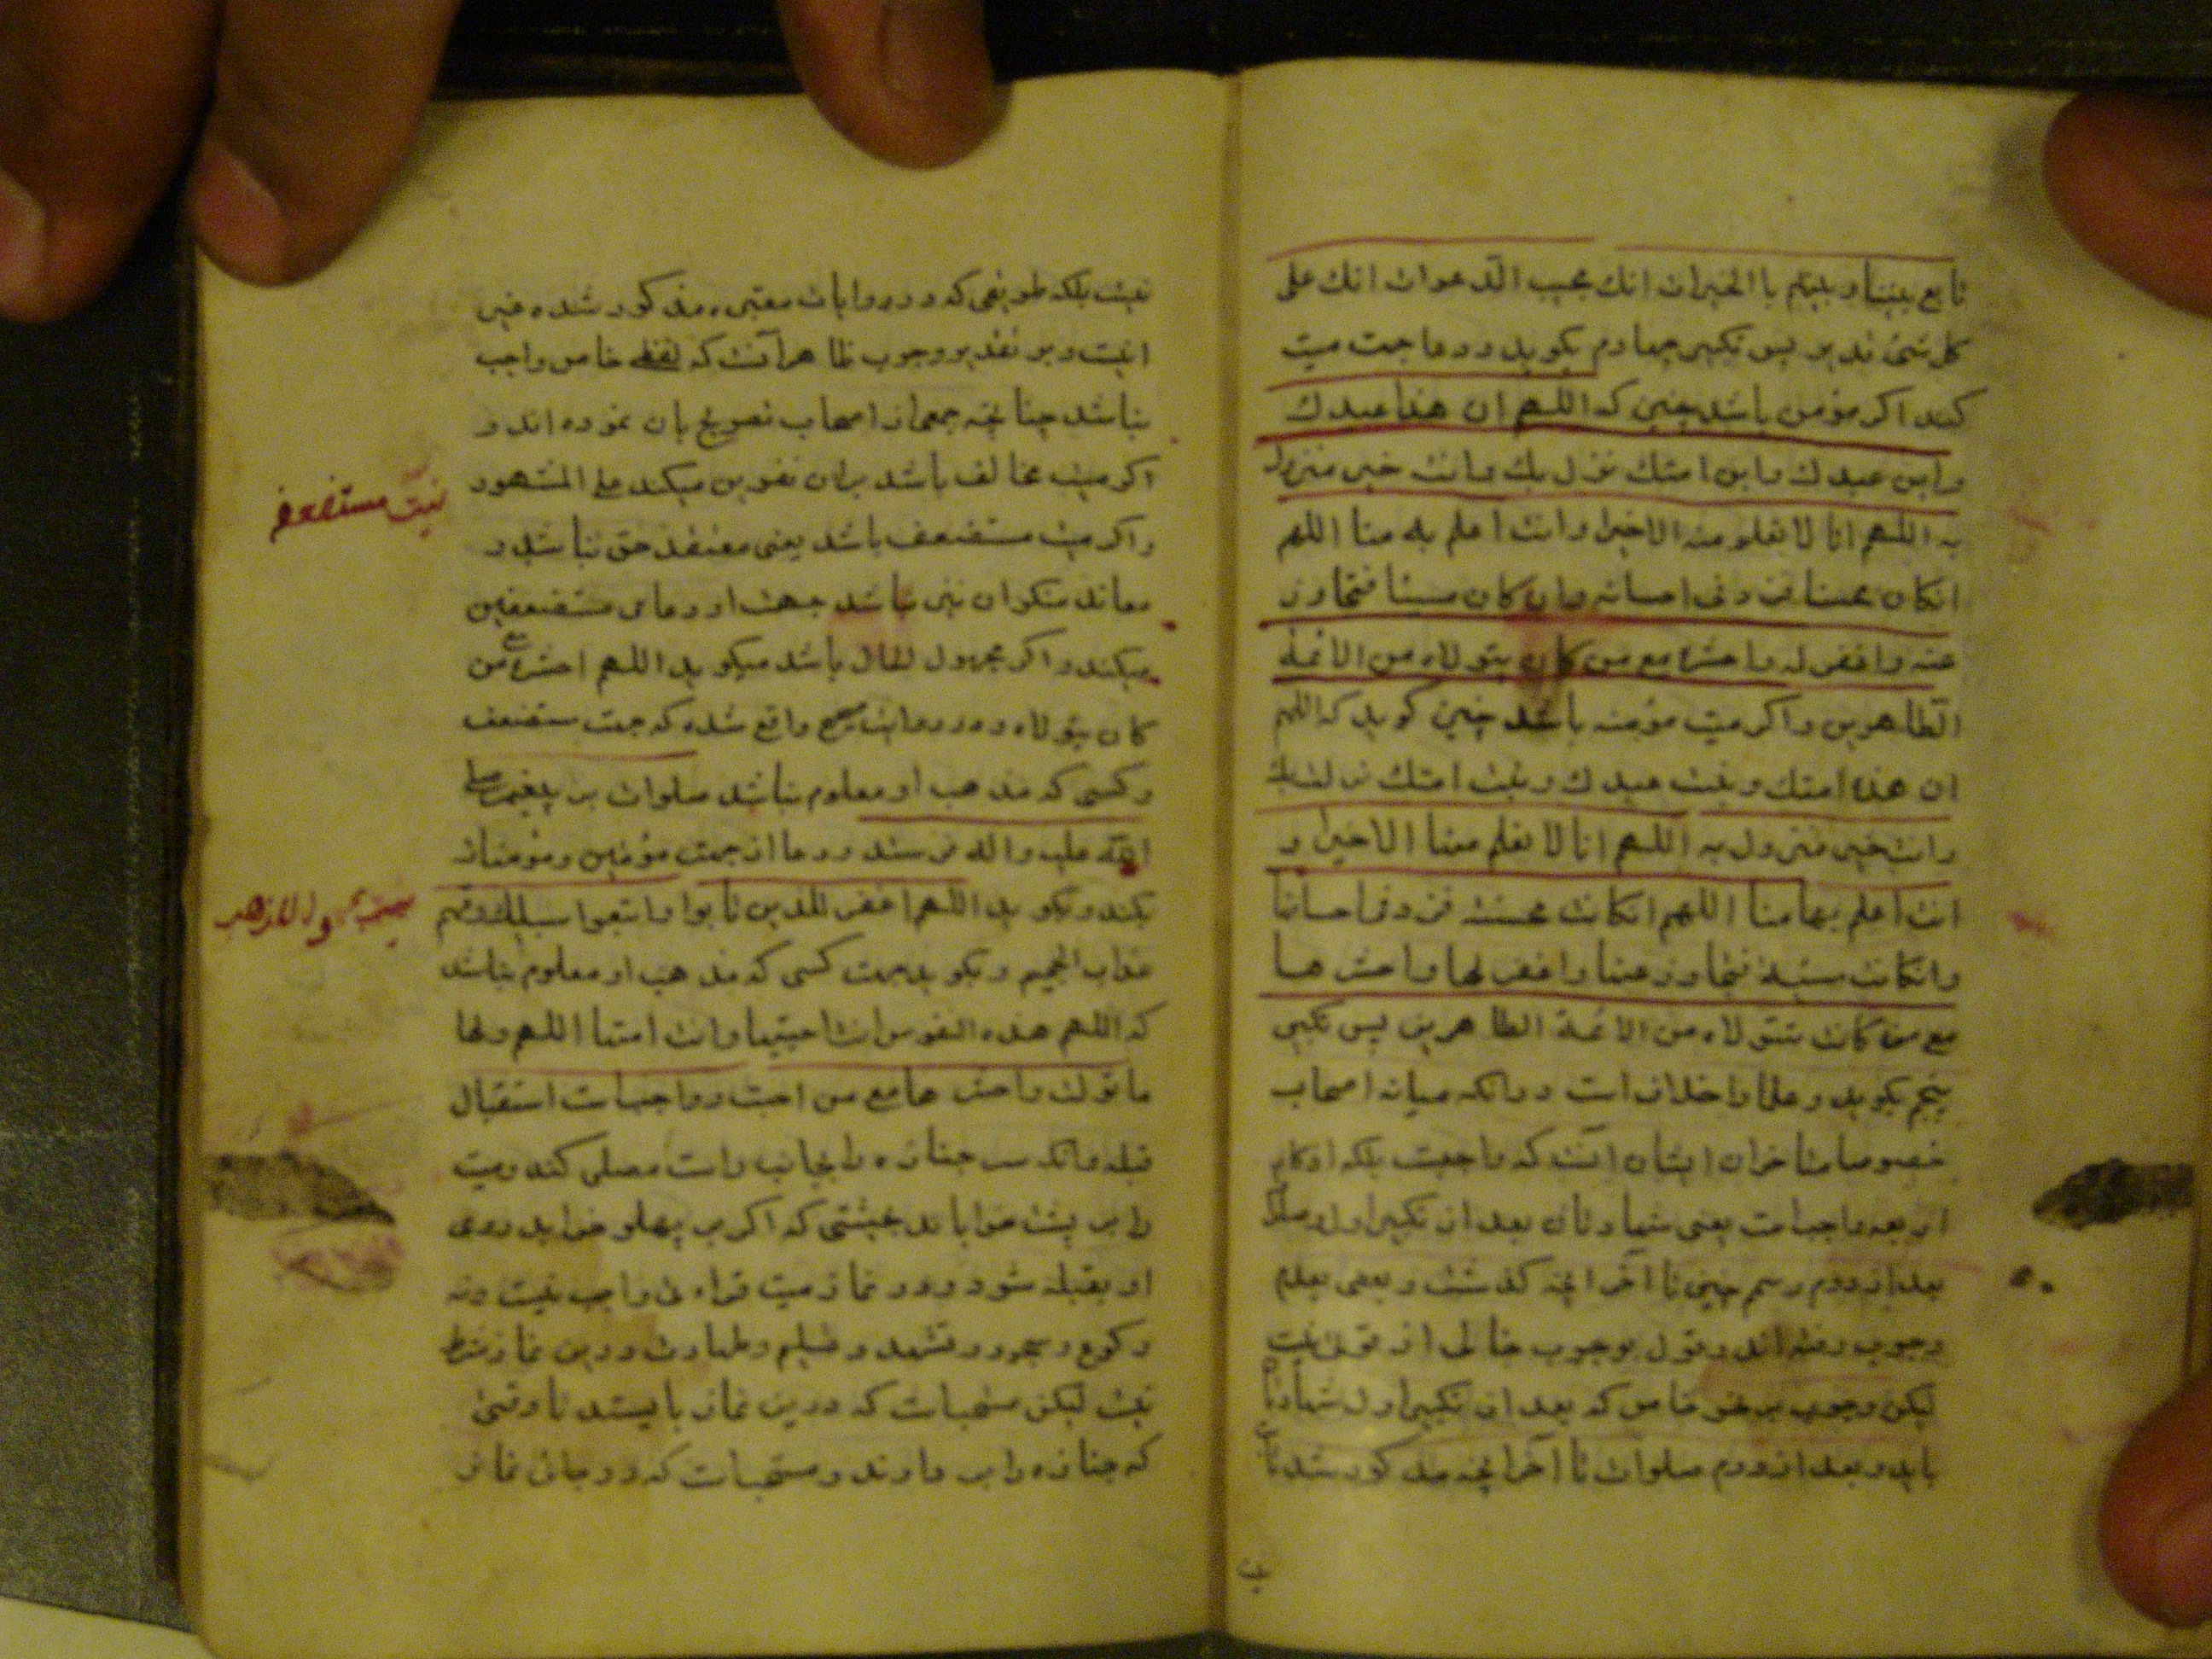 تابع بیننا و بینهم باالخیرات انك مجیب الدعوات انك علی
كل شیٔ قدیر پس تكبیر چهارم بكوید و دعا جهت میت
كند اكر مؤمن باشد چنین كه اللهم ان هذا عبدك
وابن عبدك وابن امتك نزل بك وانت خیر منزول
به اللهم انا لا نعلم منه الا خیرا وانت اعلم به منا اللهم
انكان محسنا فزد فی احسانه وان كان مسیئا فتجاوز
عنه واغفر له واحشره مع من كان یتولاه من الائمة
الطاهرین واكر میت مؤمنه باشد چنین كوید كه اللهم
ان هذه امتك وبنت عبدك وبنت امتك نزلت بك
وانت خیر منزول به اللهم انا لا نعلم منها الا خیرا و
انت اعلم بها منا اللهم انكانت محسنة فزد فی احسانها
وانكانت سیئة فتجاوز عنها واغفر لها واحشرها
مع من كانت تتولاه من الائمة الطاهرین پس تكبیر
پنجم بكوید و علما را خلاف است درانكه میانه اصحاب
خصوصا متاخران ایشان انست كه واجبست بلكه اذكار
اربعه واجبست یعنی شهادتان بعد از تكبیر اول و صلوة
بعد از دوم و سیم چنین تا آخر آنچه كذشت و بعضی بعدم
وجوب رفته اند و قول بوجوب خالی از قوتی نیست
لیكن وجوب بر نحو خاص كه بعد از تكبیر اول شهادتان
باید و بعد از دوم صلوات تا آخر آنچه مذكور شد ثابت
نیست بلكه طریقی كه در روایات معتبره مذكور شده غیر
اینست و بر تقدیر وجوب ظاهر آنست كه لفظی خاص واجب
نباشد چنانچه جمعی از اصحاب تصریح بان نموده اند و
اكر میت مخالف باشد بران نفرین میكند علی المشهور
واكر میت مستضعف باشد یعنی معتقد حق نباشد و
معاند منكران نیز نباشد جهت او دعای مستضعفین
میكند و اكر مجهول الحال باشد میكوید اللهم احشره مع من
كان یتولاه و در روایت صحیح واقع شده كه جهت مستضعف
و كسی كه مذهب او معلوم نباشد صلوات بر پیغمبر صلی
الله علیه واله فرستد و دعا از جهت مؤمنین و مؤمنات
بكند و بكوید اللهم اغفر للذین تابوا واتبعوا سبیلك وقهم
عذاب الجحیم و بكوید جهت كسی كه مذهب او معلوم نباشد
كه اللهم هذه النفوس انت احییتها وانت امتها اللهم ولها
ما تولت واحشرها مع من احبت و واجبست استقبال
قبله وانكه سر جنازه را بجانب راست مصلی كند و میت
را بر پشت خواباند بحیثیتی كه اكر بر پهلو خوابد روی
او بقبله شود و در نماز میت قراءة واجب نیست و نه
ركوع و سجود و تشهد و تسلیم و طهارت درین نماز شرط
نیست لیكن مستحبست كه درین نماز بایستد تا وقتی
كه جنازه را بردارند و مستحبست كه در جائی نماز
نیت مستضعف
میت مجهول المذهب